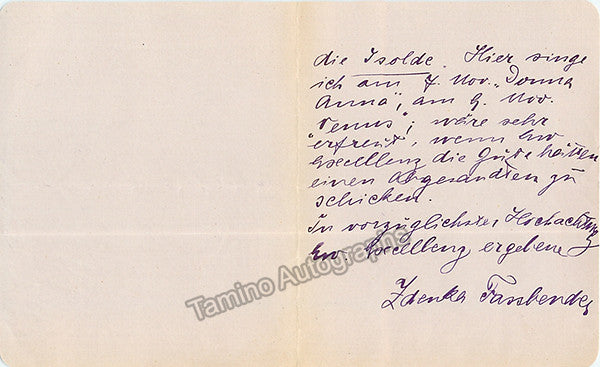 die Isolde. Hier singe
ich am 7. Nov. „Donna
Anna", am 9. Nov.
"Venus"; wäre sehr
erfreut, wenn Ew
Excellenz die Güte hätten
einen Abgesandten zu
schicken.
In vorzüglichster Hochachtung
Ew. Excellenz ergebene
Zdenka Fassbender
Tamino Autographs